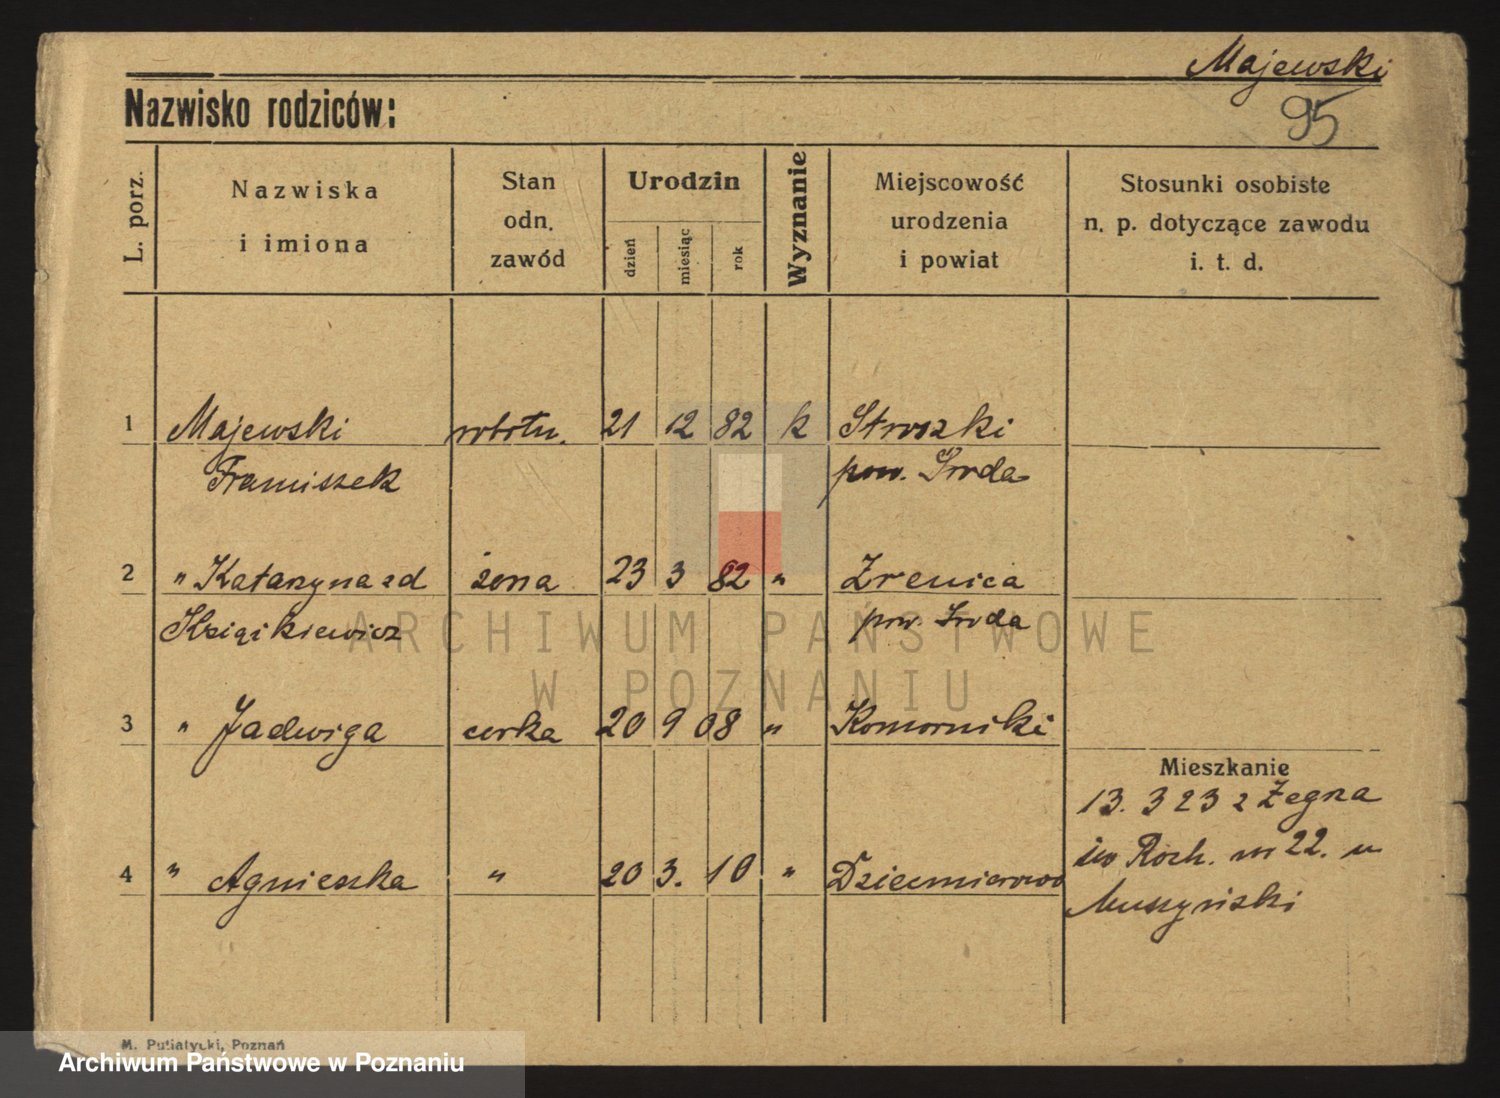 Majewski
95
Nazwisko rodziców:
L. porz.
Nazwiska
i imiona
Stan
odn.
zawód
Urodzin
dzień
miesiąc
rok
Wyznanie
Miejscowość
urodzenia
i powiat
Stosunki osobiste
n. p. dotyczące zawodu
i. t. d.
1 Majewski robotn. 21 12 82 k Stroszki
Franciszek pow. Środa
2 " Katarzyna zd żona 23 3 82 " Zrenica
Książkiewicz pow. Środa
ARCHIWUM PAŃSTWOWE
W POZNANIU
3 " Jadwiga corka 20 9 08 " Komorniki
Mieszkanie
13. 3 23 z Zegrza
Roch. nr 22. u
4 " Agnieszka " 20 3. 10 " Dziecmierowo
Muszyński
M. Putiatycki, Poznań
Archiwum Państwowe w Poznaniu